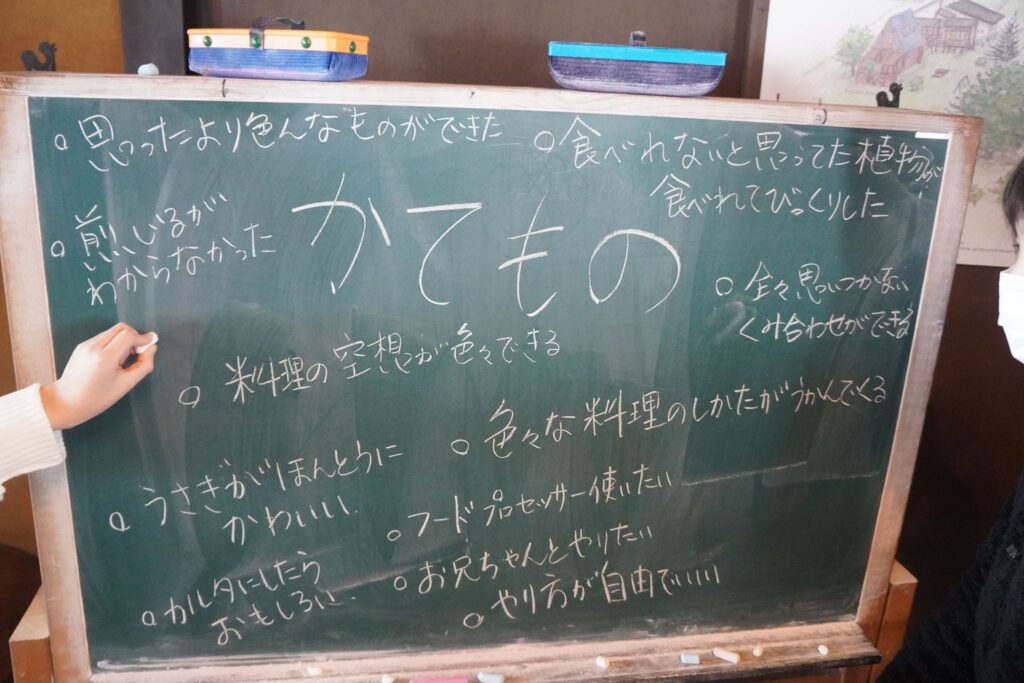 かてもの
○思ったより色んなものができた
○食べれないと思ってた植物が
食べれてびっくりした
○煎じるが
わからなかった
○全々思いつかない
くみ合わせができる
○料理の空想が色々できる
○色々な料理のしかたがうかんでくる
○うさぎがほんとうに
かわいい.
○フードプロセッサー使いたい
○カルタにしたら
おもしろい.
○お兄ちゃんとやりたい
○やり方が自由でいい